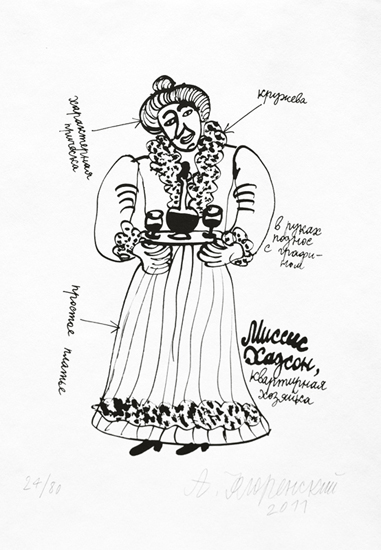 характерная
причёска
кружева
в руках
поднос
с графи-
ном
простое платье
Миссис
Хадсон,
квартирная
хозяйка
24/80
А.
2011